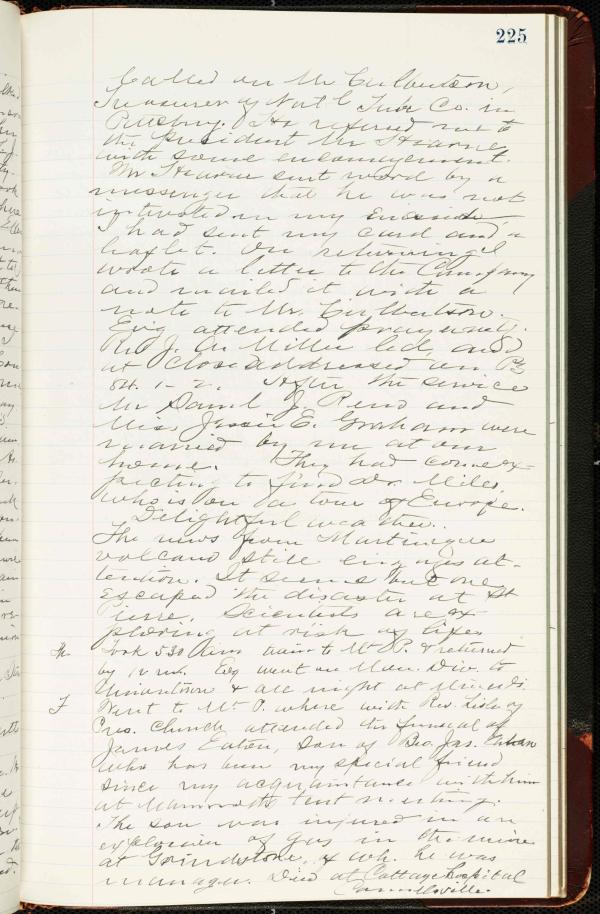 225
Called on Mr Culbertson,
Treasurer of Nat'l Tube Co. in
Pittsburg. He referred me to
the President Mr Hearne
with some encouragement.
Mr Hearne sent word by a
messenger that he was not
interested in my
I had sent my card and a
leaflet. On returning I
wrote a letter to the Company
and mailed it with a
note to Mr. Culbertson.
Ev'g attended prayer mtg.
Rev J. A. Miller led, and I
at close addressed on Ps
84. 1-2. After the service
Mr Saml J. Reno and
Miss Jessie E. Graham were
married by me at our
home. They had come ex-
pecting to find Dr. Miles
who is on a tour of Europe.
Delightful weather.
The news from Martinique
volcano still engages at-
tention. It seems but one
escaped the disaster at St
Pierre. Scientists are ex-
ploring at risk of lives
Th. Took 530 train to Mt P. & returned
by 12 Ev'g went on Mon. Div. to
Uniontown & all night at
F Went to Mt P. where with Rev. of
Pres. Church attended the funeral of
James Eaton, son of Bro. Jas. Eaton
who has been my special friend
since my acquaintance with him
at Mammoth tent meeting.
The son was injured in an
explosion of gas in the mine
at Grindstone, of wh. he was
manager. Died at Cottage Hospital
Connellsville.